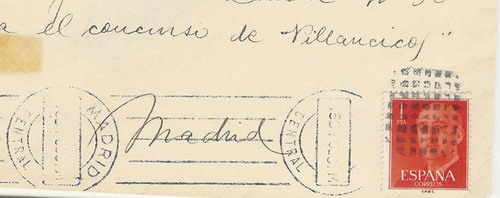 a el concurso de Villancicos"
CENTRAL
MADRID
Madrid
CENTRAL
1
PTA
ESPAÑA
CORREOS